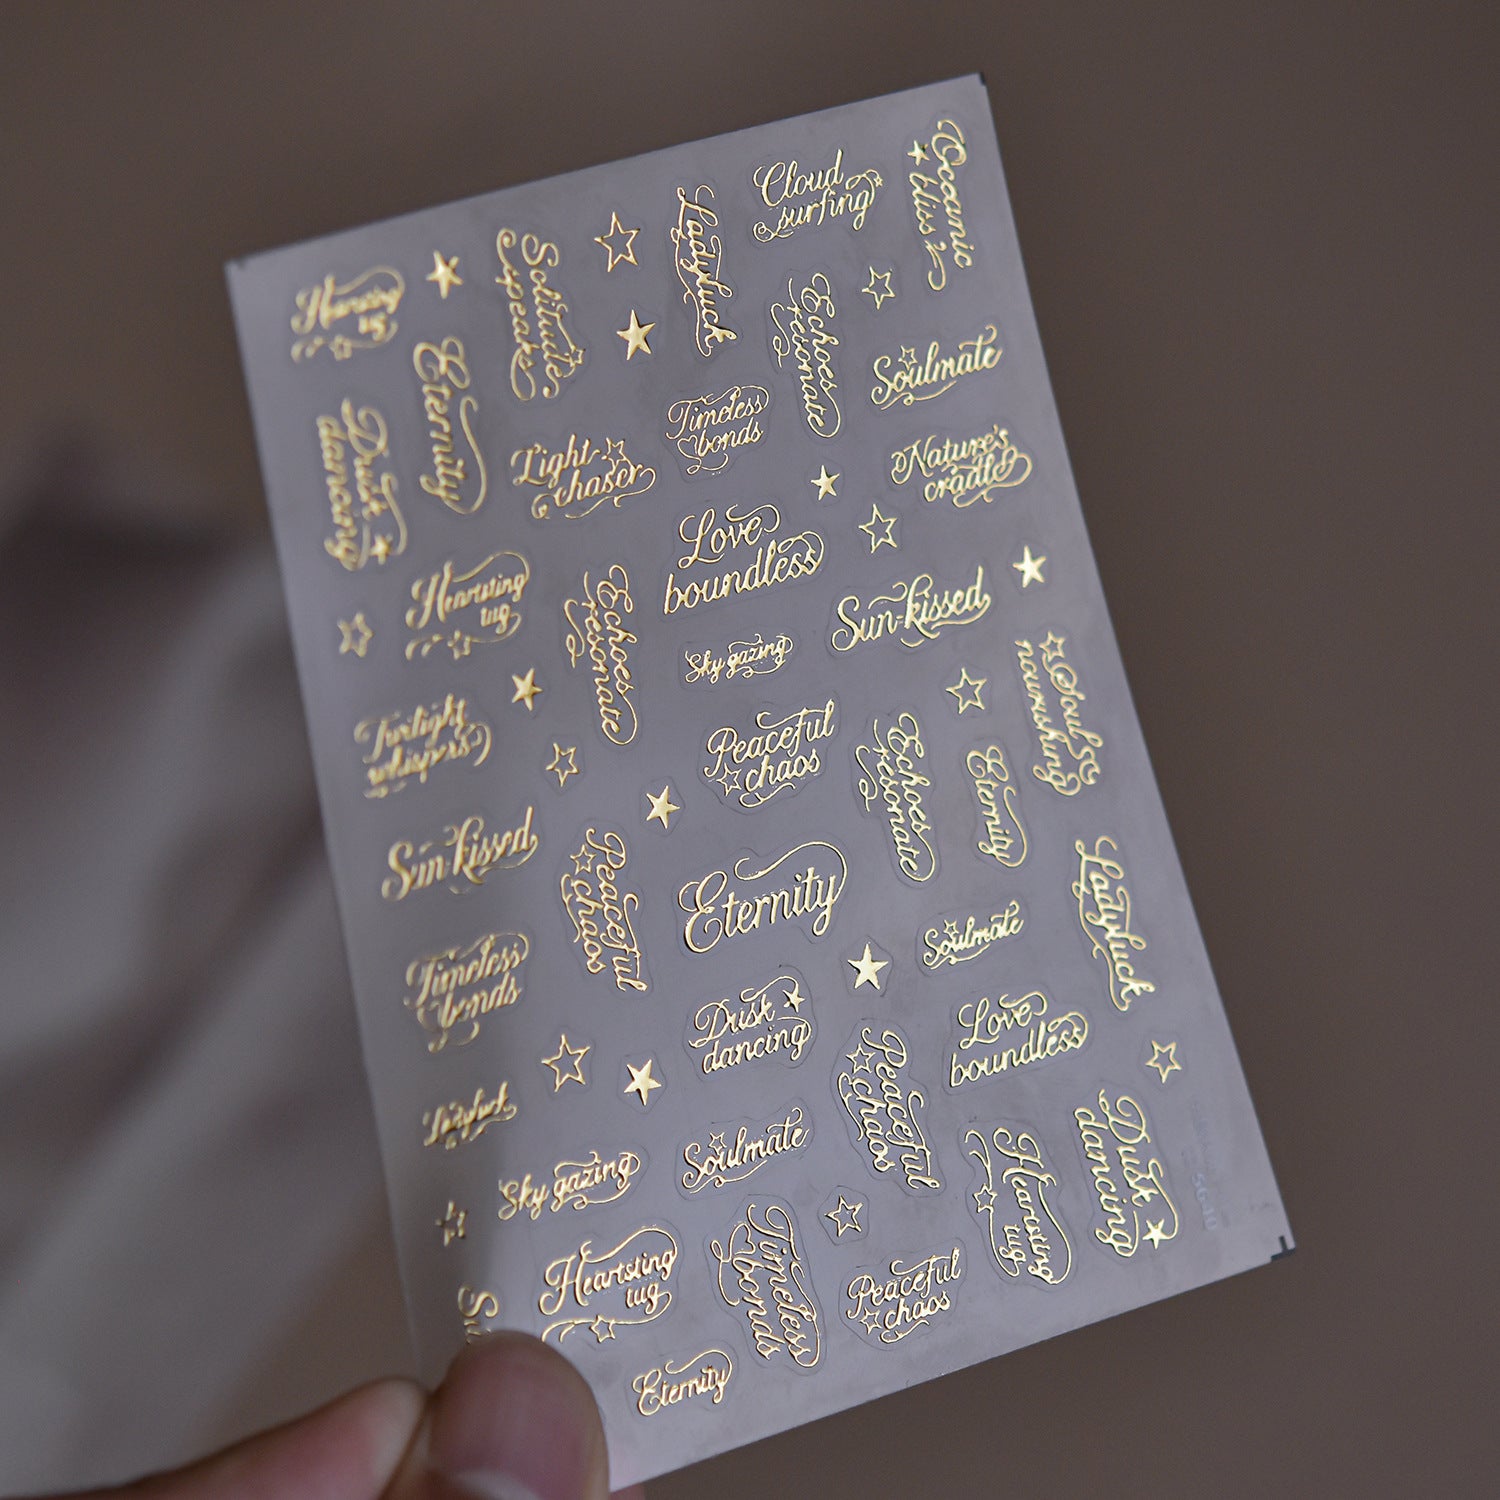 Cloud
surfing
Ocoanic
bliss
Ladyluck
Solitude
speaks
Heartsting
tug
Echoes
resonate
Soulmate
Eternity
Timeless
bonds
Dusk
dancing
Light-
chaser
Nature's
cradle
Love
boundless
Heartsting
tug
Echoes
resonate
Sun-kissed
Sky gazing
Soul
nourishing
Twilight
whispers
Peaceful
chaos
Echoes
resonate
Eternity
Sun-kissed
Peaceful
chaos
Eternity
Ladyluck
Soulmate
Timeless
bonds
Dusk
dancing
Love
boundless
Peaceful
chaos
Ladyluck
Soulmate
Dusk
dancing
Heartsting
tug
Sky gazing
Heartsting
tug
Timeless
bonds
Peaceful
chaos
Eternity